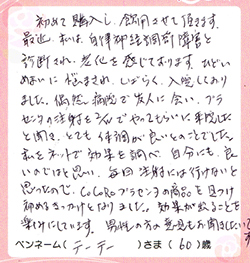 初めて購入し、飲用させて頂きます。
最近、私は、自律神経調節障害と
診断され、老化を感じております。ひどい
めまいに悩まされ、しばらく、入院しており
ました。偶然、病院で友人に会い、プラ
センタの注射をうってもらいに来院した
と聞き、とても体調が良いとのことでした。
私もネットで効果を調べ、自分にも、良
いのではと思い、毎回注射には行けないと
思ったので、CoCoRoプラセンタの商品を見つけ
初めるきっかけとなりました。効果が出ることを
楽しみにしています。男性の方の意見もお聞きしたいです
ペンネーム( テーテー )さま( 60 )歳